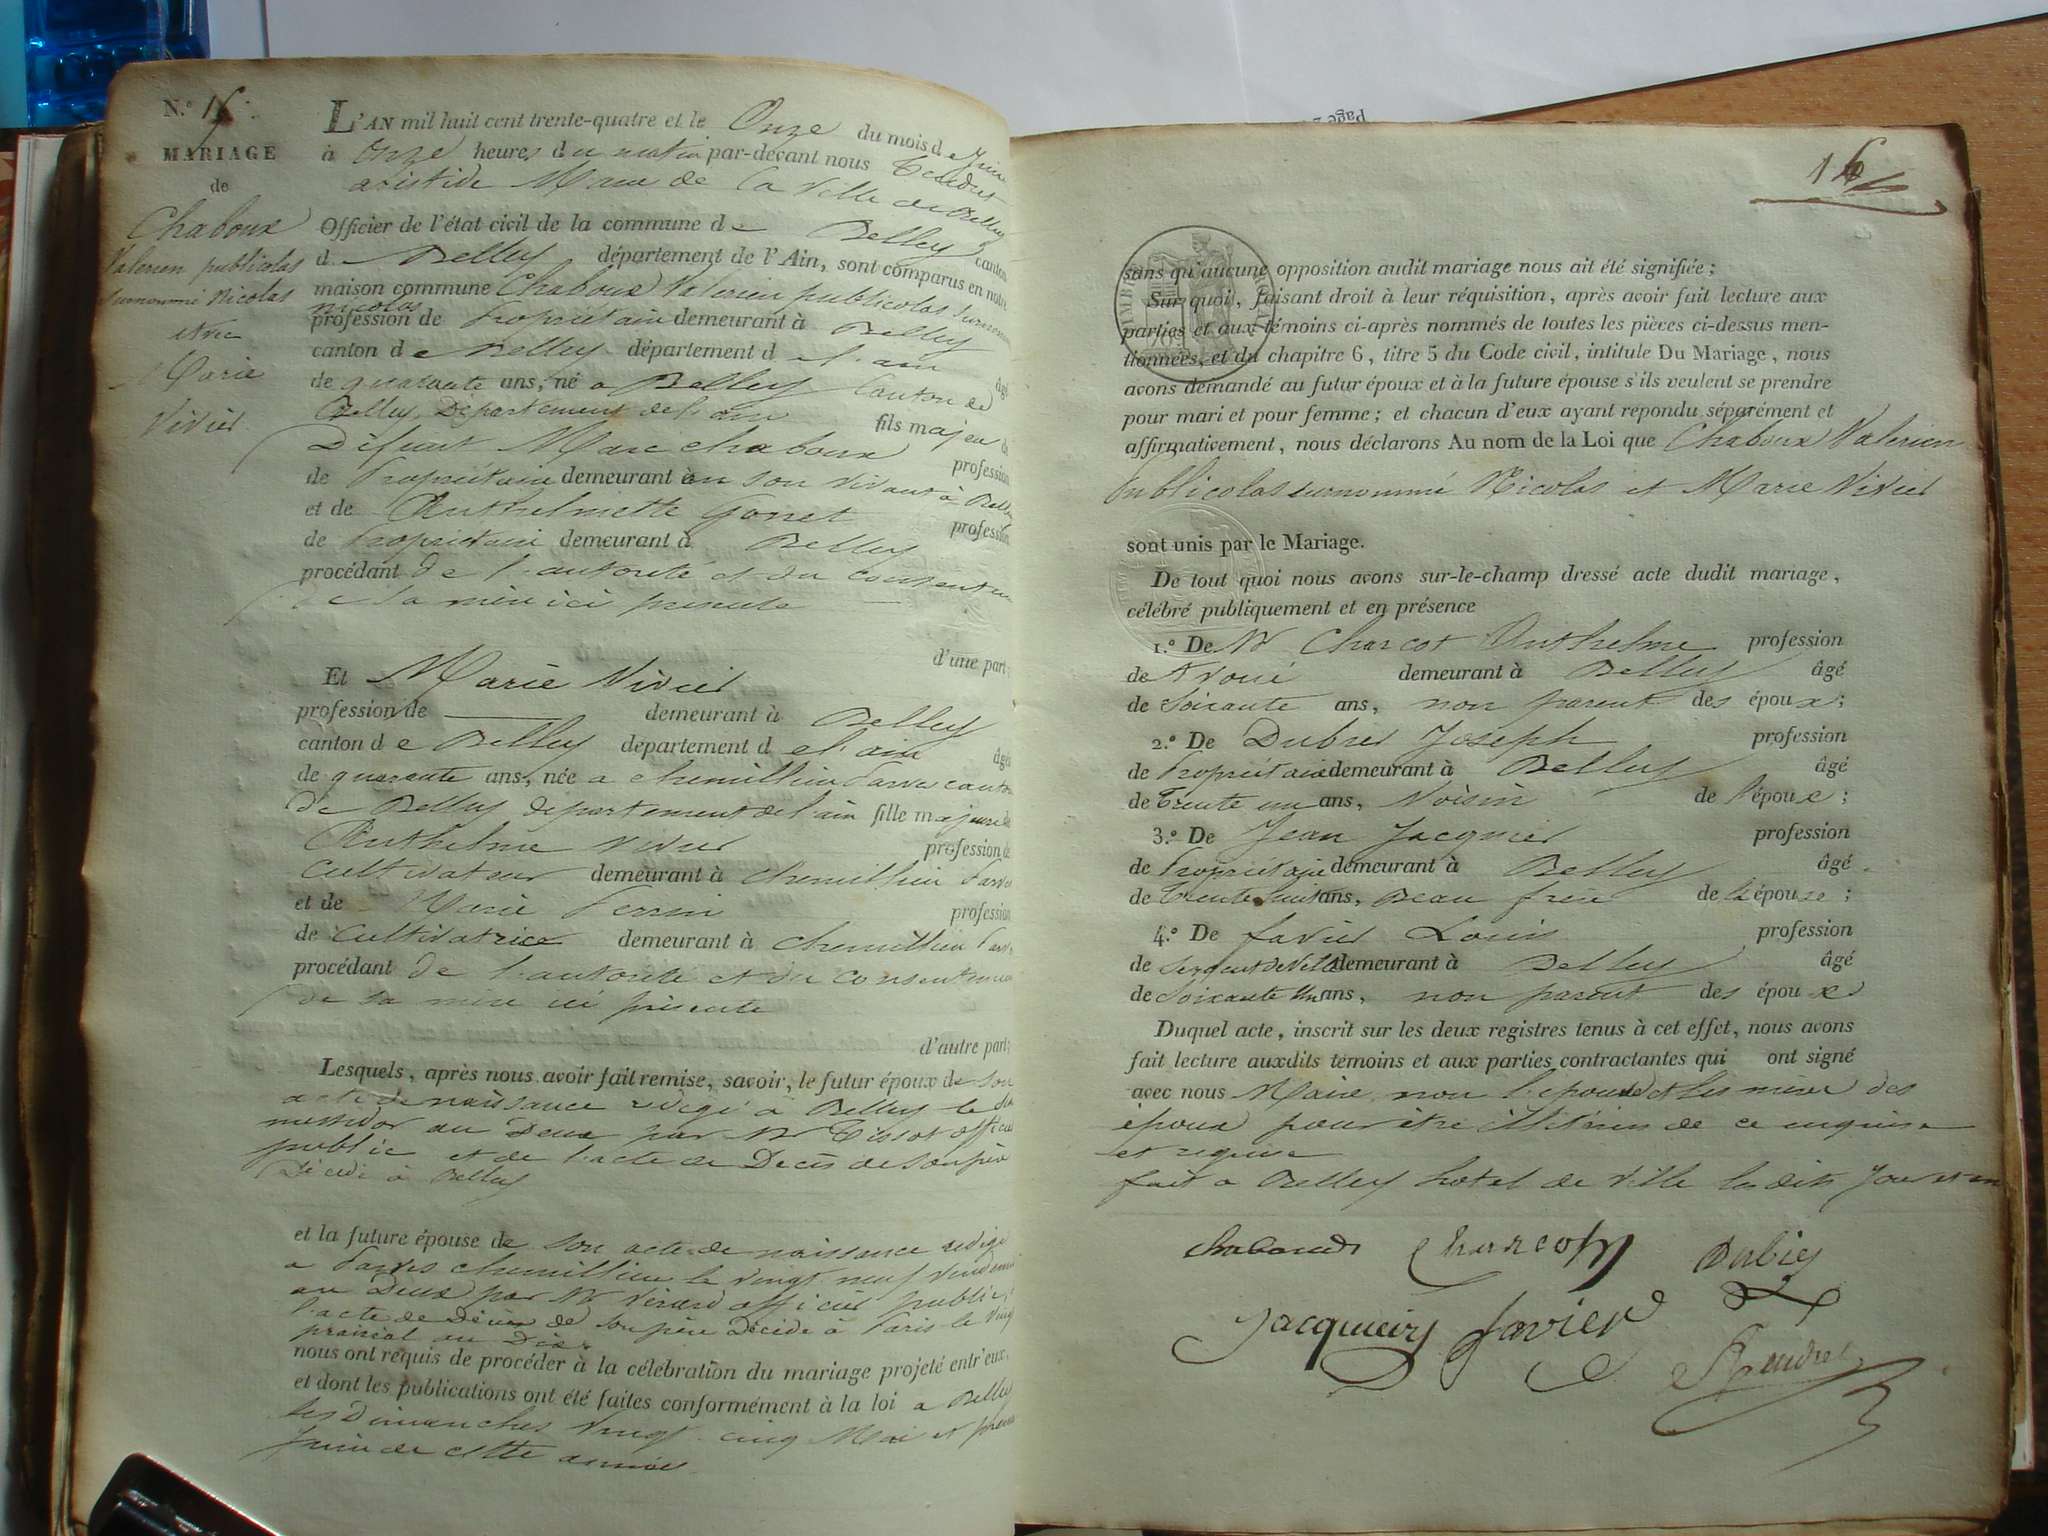 N.º 16.
MARIAGE
de
Chaboux
Valerien publicolas
surnommé Nicolas
et de
Marie
Vivier
L'AN mil huit cent trente-quatre et le Onze du mois de Juin
à Onze heures du matin par-devant nous Tendret
aristide Maire de la ville de Belley
Officier de l'état civil de la commune de Belley canton
de Belley département de l'Ain, sont comparus en notre
maison commune Chaboux Valerien publicolas surnommé
nicolas
profession de Propriétaire demeurant à Belley
canton de Belley département de l'ain âgé
de quarante ans, né a Belley Canton de
Belley, Département de l'ain fils majeur de
Défunt Marc chaboux profession
de Propriétaire demeurant en son vivant à Belley
et de Anthelmette Gonet profession
de Propriétaire demeurant à Belley
procédant de l'autorité et du consentement
de sa mère ici présente
d'une part;
Et Marie Vivier
profession de demeurant à Belley
canton de Belley département de l'ain âgée
de quarante ans, née a chemillieu Parves canton
de Belley departement de l'ain fille majeure de
Anthelme Vivier profession de
Cultivateur demeurant à chemillieu Parves
et de Marie Perrin profession
de Cultivatrice demeurant à chemillieu Parves
procédant de l'autorité et du consentement
de sa mère ici présente
d'autre part;
Lesquels, après nous avoir fait remise, savoir, le futur époux de son
acte de naissance rédigé à Belley le
messidor an Deux par Mr Tissot officier
public et de l'acte de Décès de son père
Décédé à Belley
et la future épouse de son acte de naissance rédigé
a Parves chemillieu le vingt neuf Vendem
an Deux par Mr officier public,
l'acte de Décès de son père Décédé à Paris le Vingt
prairial an Dix
nous ont requis de procéder à la célébration du mariage projeté entr'eux,
et dont les publications ont été faites conformément à la loi a Belley
les Dimanches Vingt cinq Mai et premier
juin de cette année
16
TIMBRE ROYAL
sans qu'aucune opposition audit mariage nous ait été signifiée;
Sur quoi, faisant droit à leur réquisition, après avoir fait lecture aux
parties et aux témoins ci-après nommés de toutes les pièces ci-dessus men-
tionnées, et du chapitre 6, titre 5 du Code civil, intitule Du Mariage, nous
avons demandé au futur époux et à la future épouse s'ils veulent se prendre
pour mari et pour femme; et chacun d'eux ayant repondu séparément et
affirmativement, nous déclarons Au nom de la Loi que Chaboux Valerien
Publicolas surnommé Nicolas et Marie Vivier
sont unis par le Mariage.
De tout quoi nous avons sur-le-champ dressé acte dudit mariage,
célébré publiquement et en présence
1.º De Mr Charcot Anthelme profession
de Avoué demeurant à Belley âgé
de Soixante ans, non parent des époux;
2.º De Dubiez Joseph profession
de Propriétaire demeurant à Belley âgé
de Trente un ans, Voisin de l'époux;
3.º De Jean Jacquier profession
de Propriétaire demeurant à Belley âgé
de trente huit ans, Beau frère de l'épouse;
4.º De favier Louis profession
de sergent de Ville demeurant à Belley âgé
de Soixante un ans, non parent des époux
Duquel acte, inscrit sur les deux registres tenus à cet effet, nous avons
fait lecture auxdits témoins et aux parties contractantes qui ont signé
avec nous Maire non l'épouse et les mères des
époux pour être illitérées de ce enquises
et requises
fait a Belley hotel de ville lesdits Jour et an
chaboux Charcot Dubiez
Jacquier favier
A. Tendret